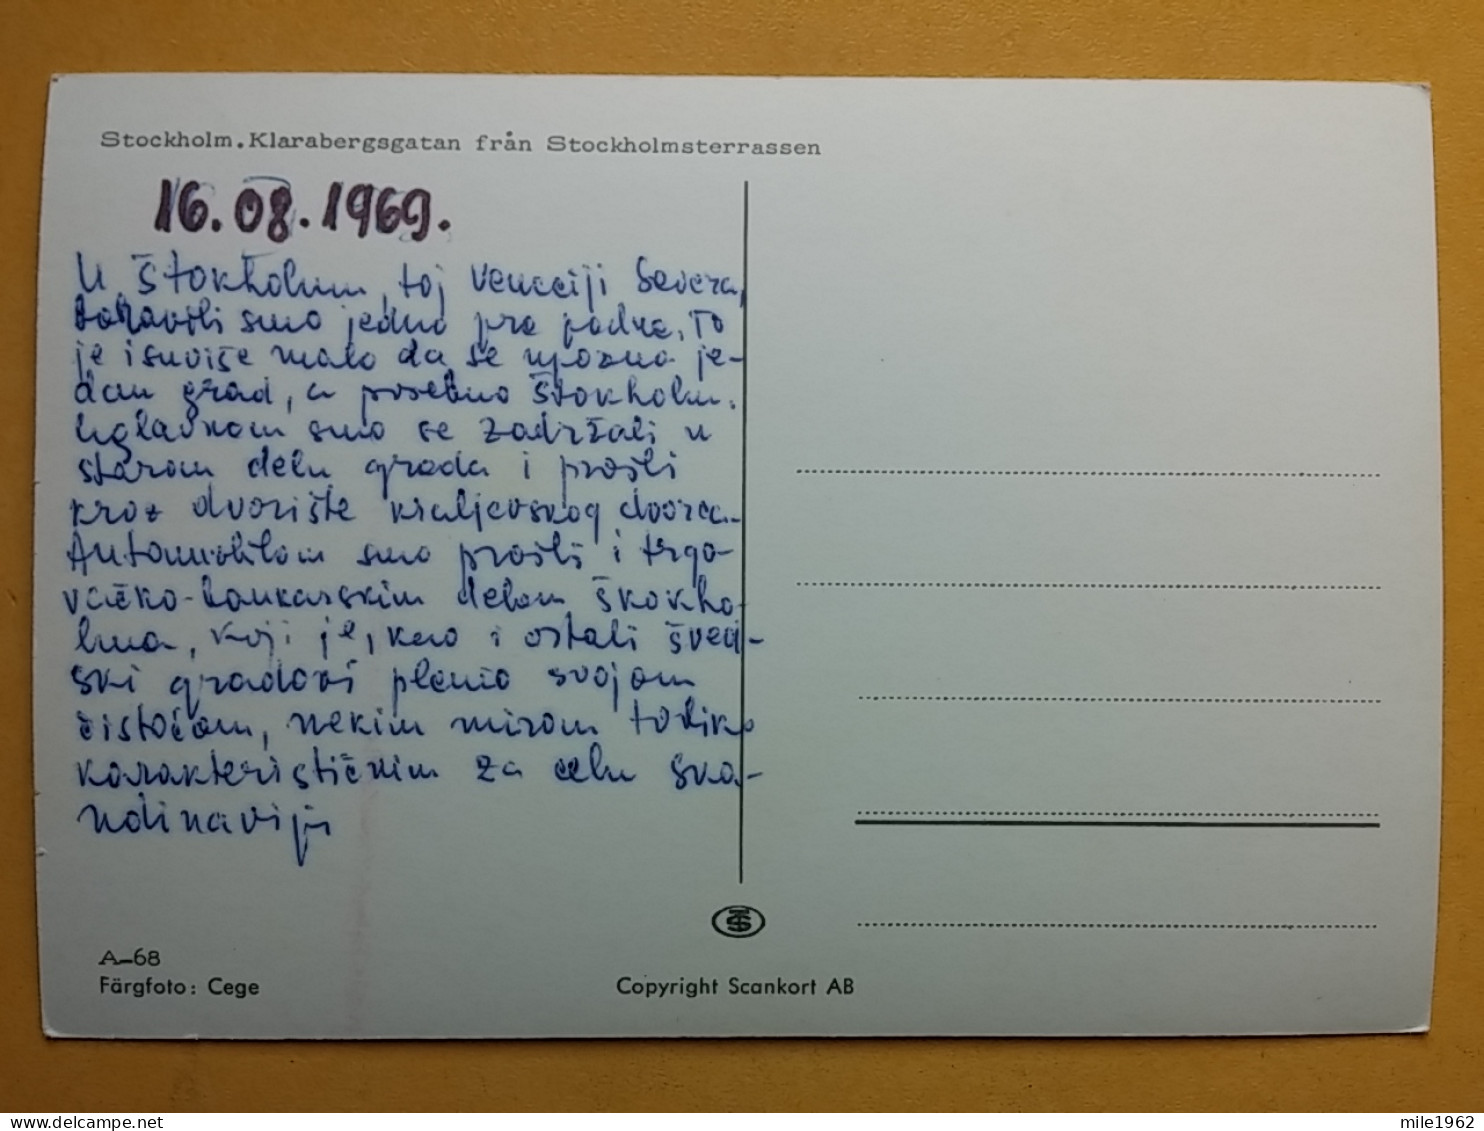 Stockholm. Klarabergsgatan från Stockholmsterrassen
16.08.1969.
U Štokholmu, toj Veneciji Severa,
boravili smo jedno pre podne. To
je isuviše malo da se upozna je-
dan grad, a posebno Štokholm.
Uglavnom smo se zadržali u
starom delu grada i prošli
kroz dvorište kraljevskog dvorca.
Automobilom smo prošli i trgo-
vačko-bankarskim delom Škokho-
lma, koji je, kao i ostali šved-
ski gradovi plenio svojom
čistoćom, nekim mirom toliko
karakterističnim za celu Ska-
ndinaviju
A-68
Färgfoto: Cege
Copyright Scankort AB
mile1962